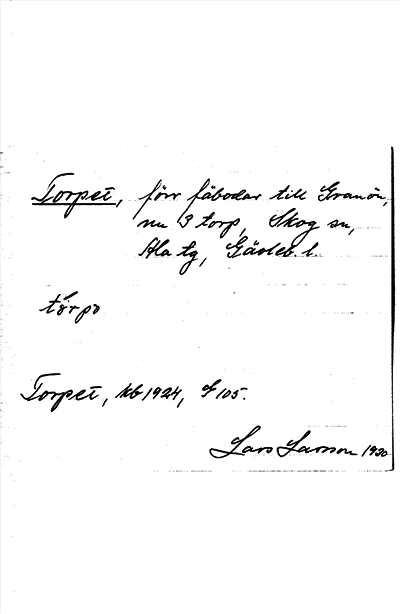 Torpet, förr fäbodar till Granön,
nu 3 torp, Skog sn,
Ala tg, Gävleb. l.
tórpo
Torpet, kb 1924, S 105.
Lars Larsson 1930